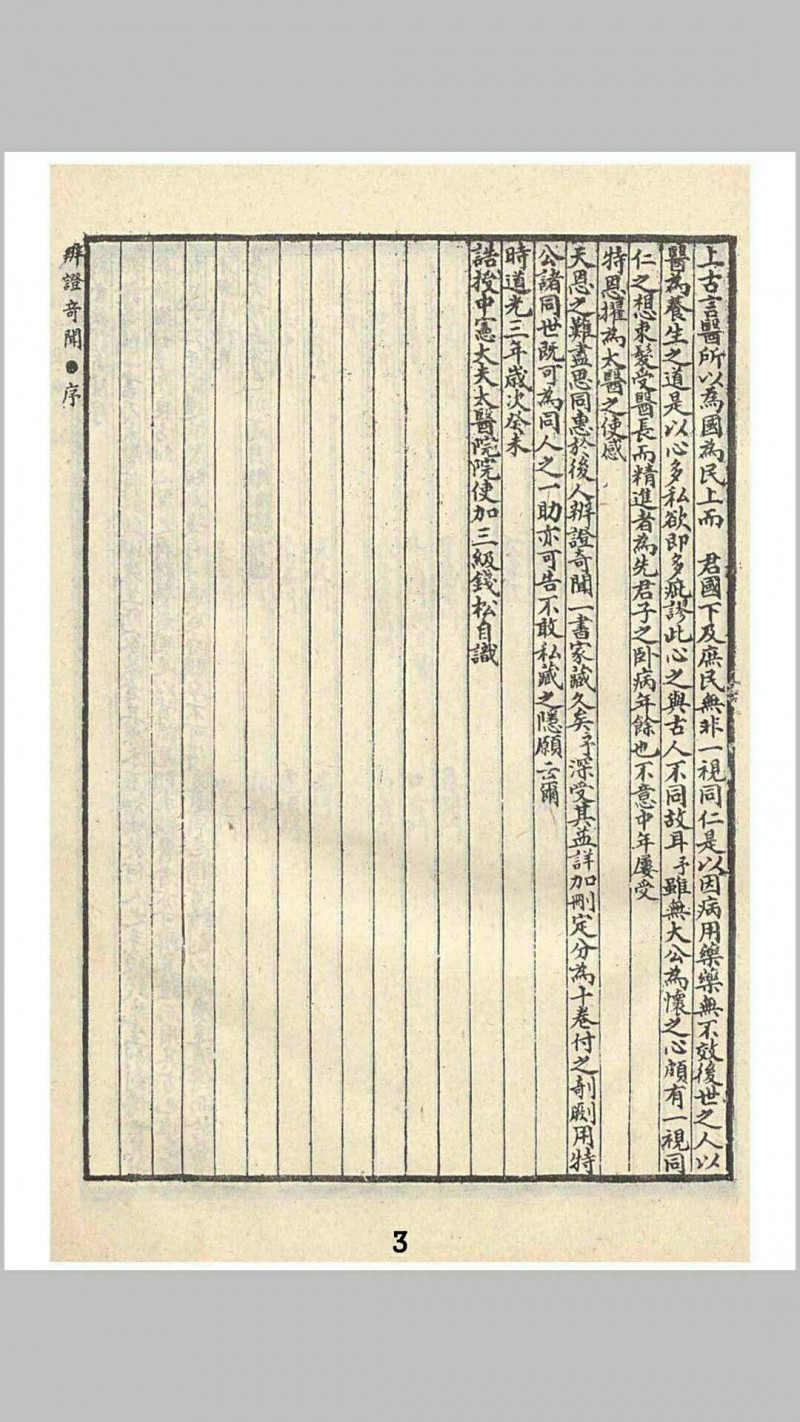 上古言醫所以為國為民上而　君國下及庶民無非一視同仁是以因病用藥藥無不效後世之人以
醫為養生之道是以心多私欲即多疵謬此心之與古人不同故耳予雖無大公為懷之心頗有一視同
仁之想束髮受醫長而精進者為先君子之卧病年餘也不意中年屢受
特恩擢為太醫之使感
天恩之難盡思同惠於後人辨證奇聞一書家藏久矣予深受其益詳加刪定分為十卷付之剞劂用特
公諸同世既可為同人之一助亦可告不敢私藏之隱願云爾
時道光三年歲次癸未
誥授中憲大夫太醫院院使加三級錢松自識
辨證奇聞●序
3